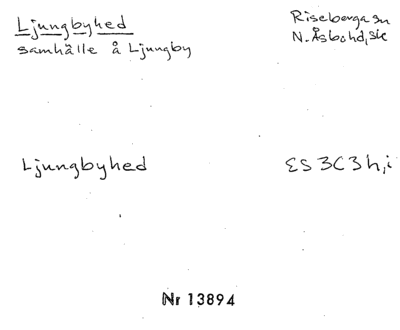 Ljungbyhed
samhälle å Ljungby
Riseberga sn
N. Åsbohd, Sk
Ljungbyhed
ES 3C3h,i
Nr 13894